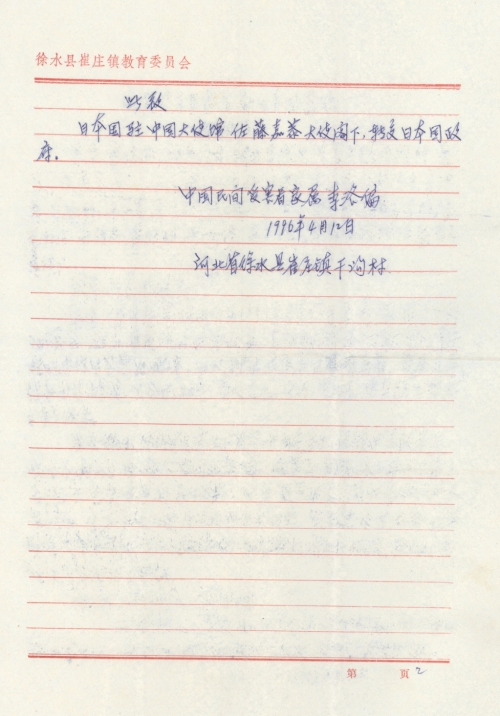 徐水县崔庄镇教育委员会
此致
日本国驻中国大使馆 佐藤嘉恭大使阁下,转交日本国政
府。
中国民间受害者家属 李
1996年4月12日
河北省徐水县崔庄镇下沟村
第 页 2